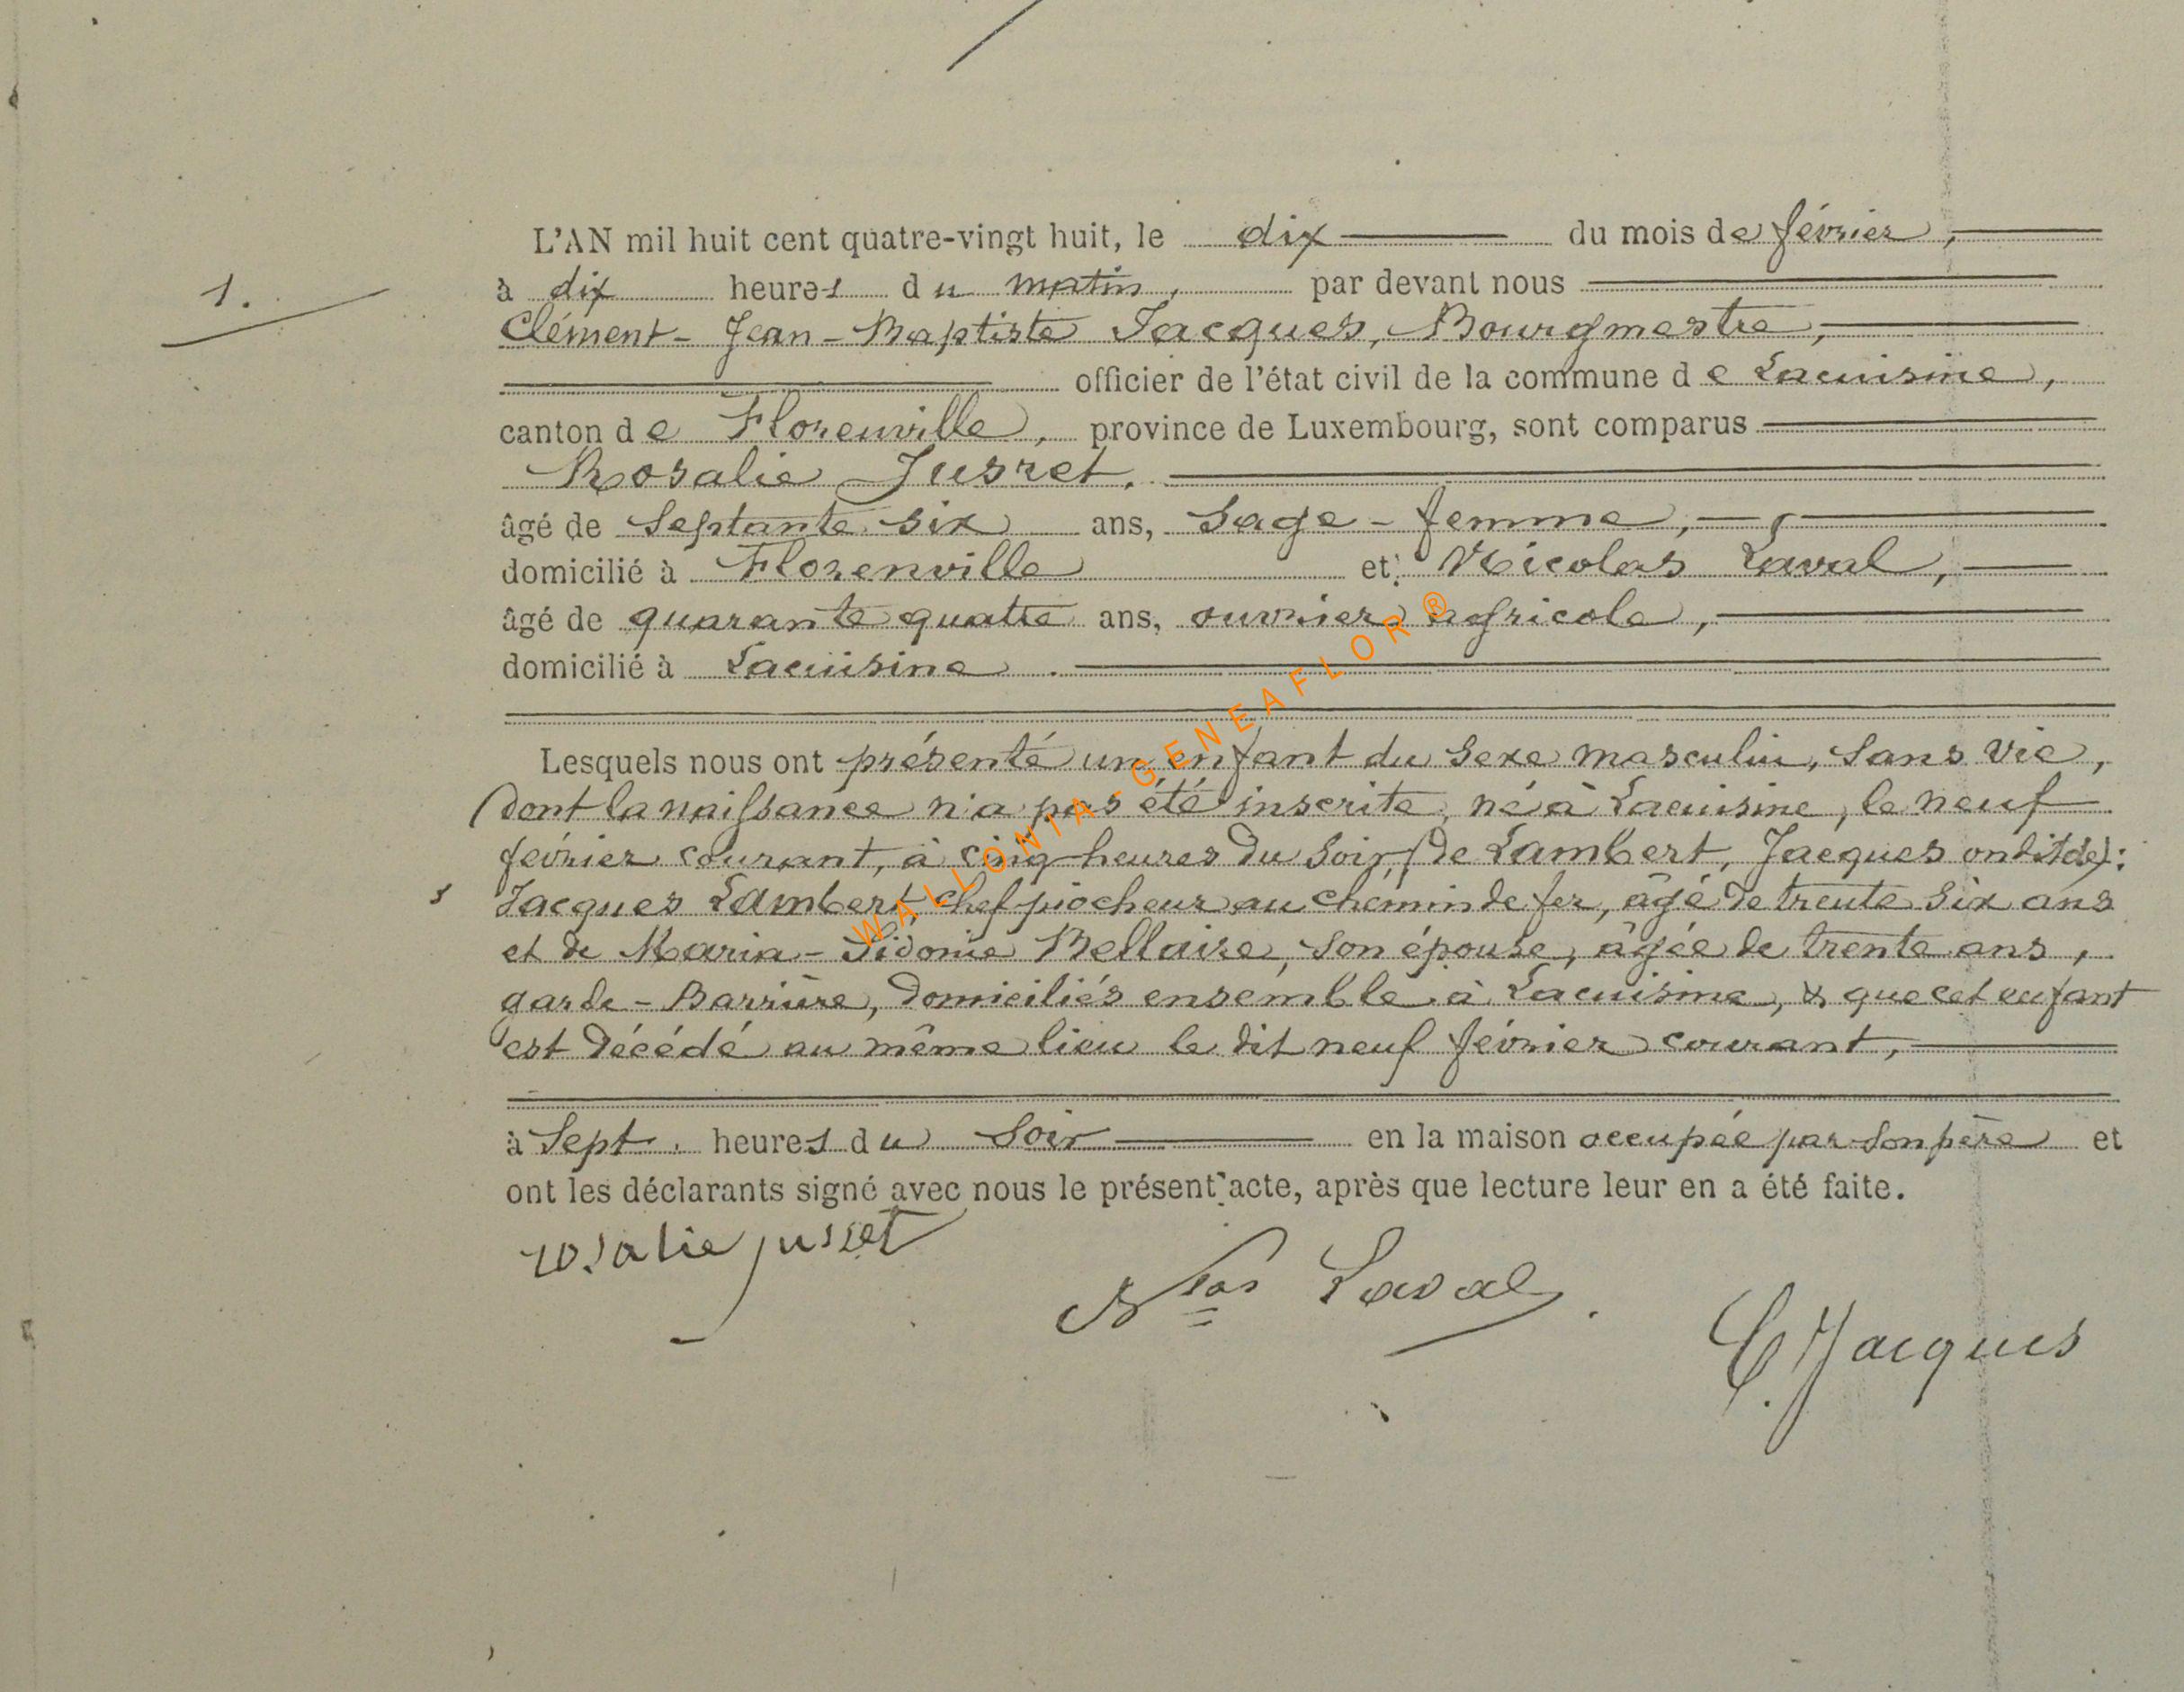 L'AN mil huit cent quatre-vingt huit, le dix du mois de février,
1.
à dix heures du matin, par devant nous
Clément-Jean-Baptiste Jacques, Bourgmestre,
officier de l'état civil de la commune de Lacuisine,
canton de Florenville, province de Luxembourg, sont comparus
Rosalie Jusret,
âgé de Septante six ans, Sage-femme,
domicilié à Florenville et Nicolas Laval,
âgé de quarante quatre ans, ouvrier agricole,
domicilié à Lacuisine.
Lesquels nous ont présenté un enfant du Sexe masculin, Sans vie,
(dont la naissance n'a pas été inscrite, né à Lacuisine, le neuf
février courant, à cinq heures du Soir, (de Lambert, Jacques on dit de):
Jacques Lambert, chef piocheur au chemin de fer, âgé de trente Six ans
et de Maria-Sidonie Bellaire, Son épouse, âgée de trente ans,
garde-Barrière, domiciliés ensemble à Lacuisine, & que cet enfant
est décédé au même lieu le dit neuf février courant,
à Sept heures du Soir en la maison occupée par Son père et
ont les déclarants signé avec nous le présent acte, après que lecture leur en a été faite.
rosalie jusret
Nlas Laval
C. Jacques
WALLONIA-GENEAFLOR®